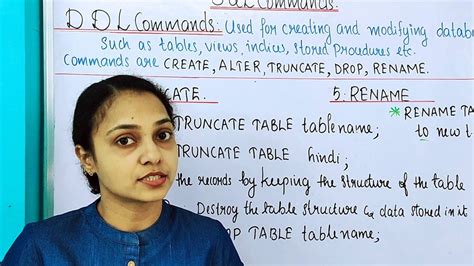 SQL Commands.
DDL Commands: Used for creating and modifying datab
Such as tables, views, indices, stored procedures etc.
Commands are CREATE, ALTER, TRUNCATE, DROP, RENAME.
CATE.
TRUNCATE TABLE tablename;
TRUNCATE TABLE hindi;
the records by keeping the structure of the table
Destroy the table structure & data stored in it
OP TABLE tablename;
5. RENAME
* RENAME TA
to new t